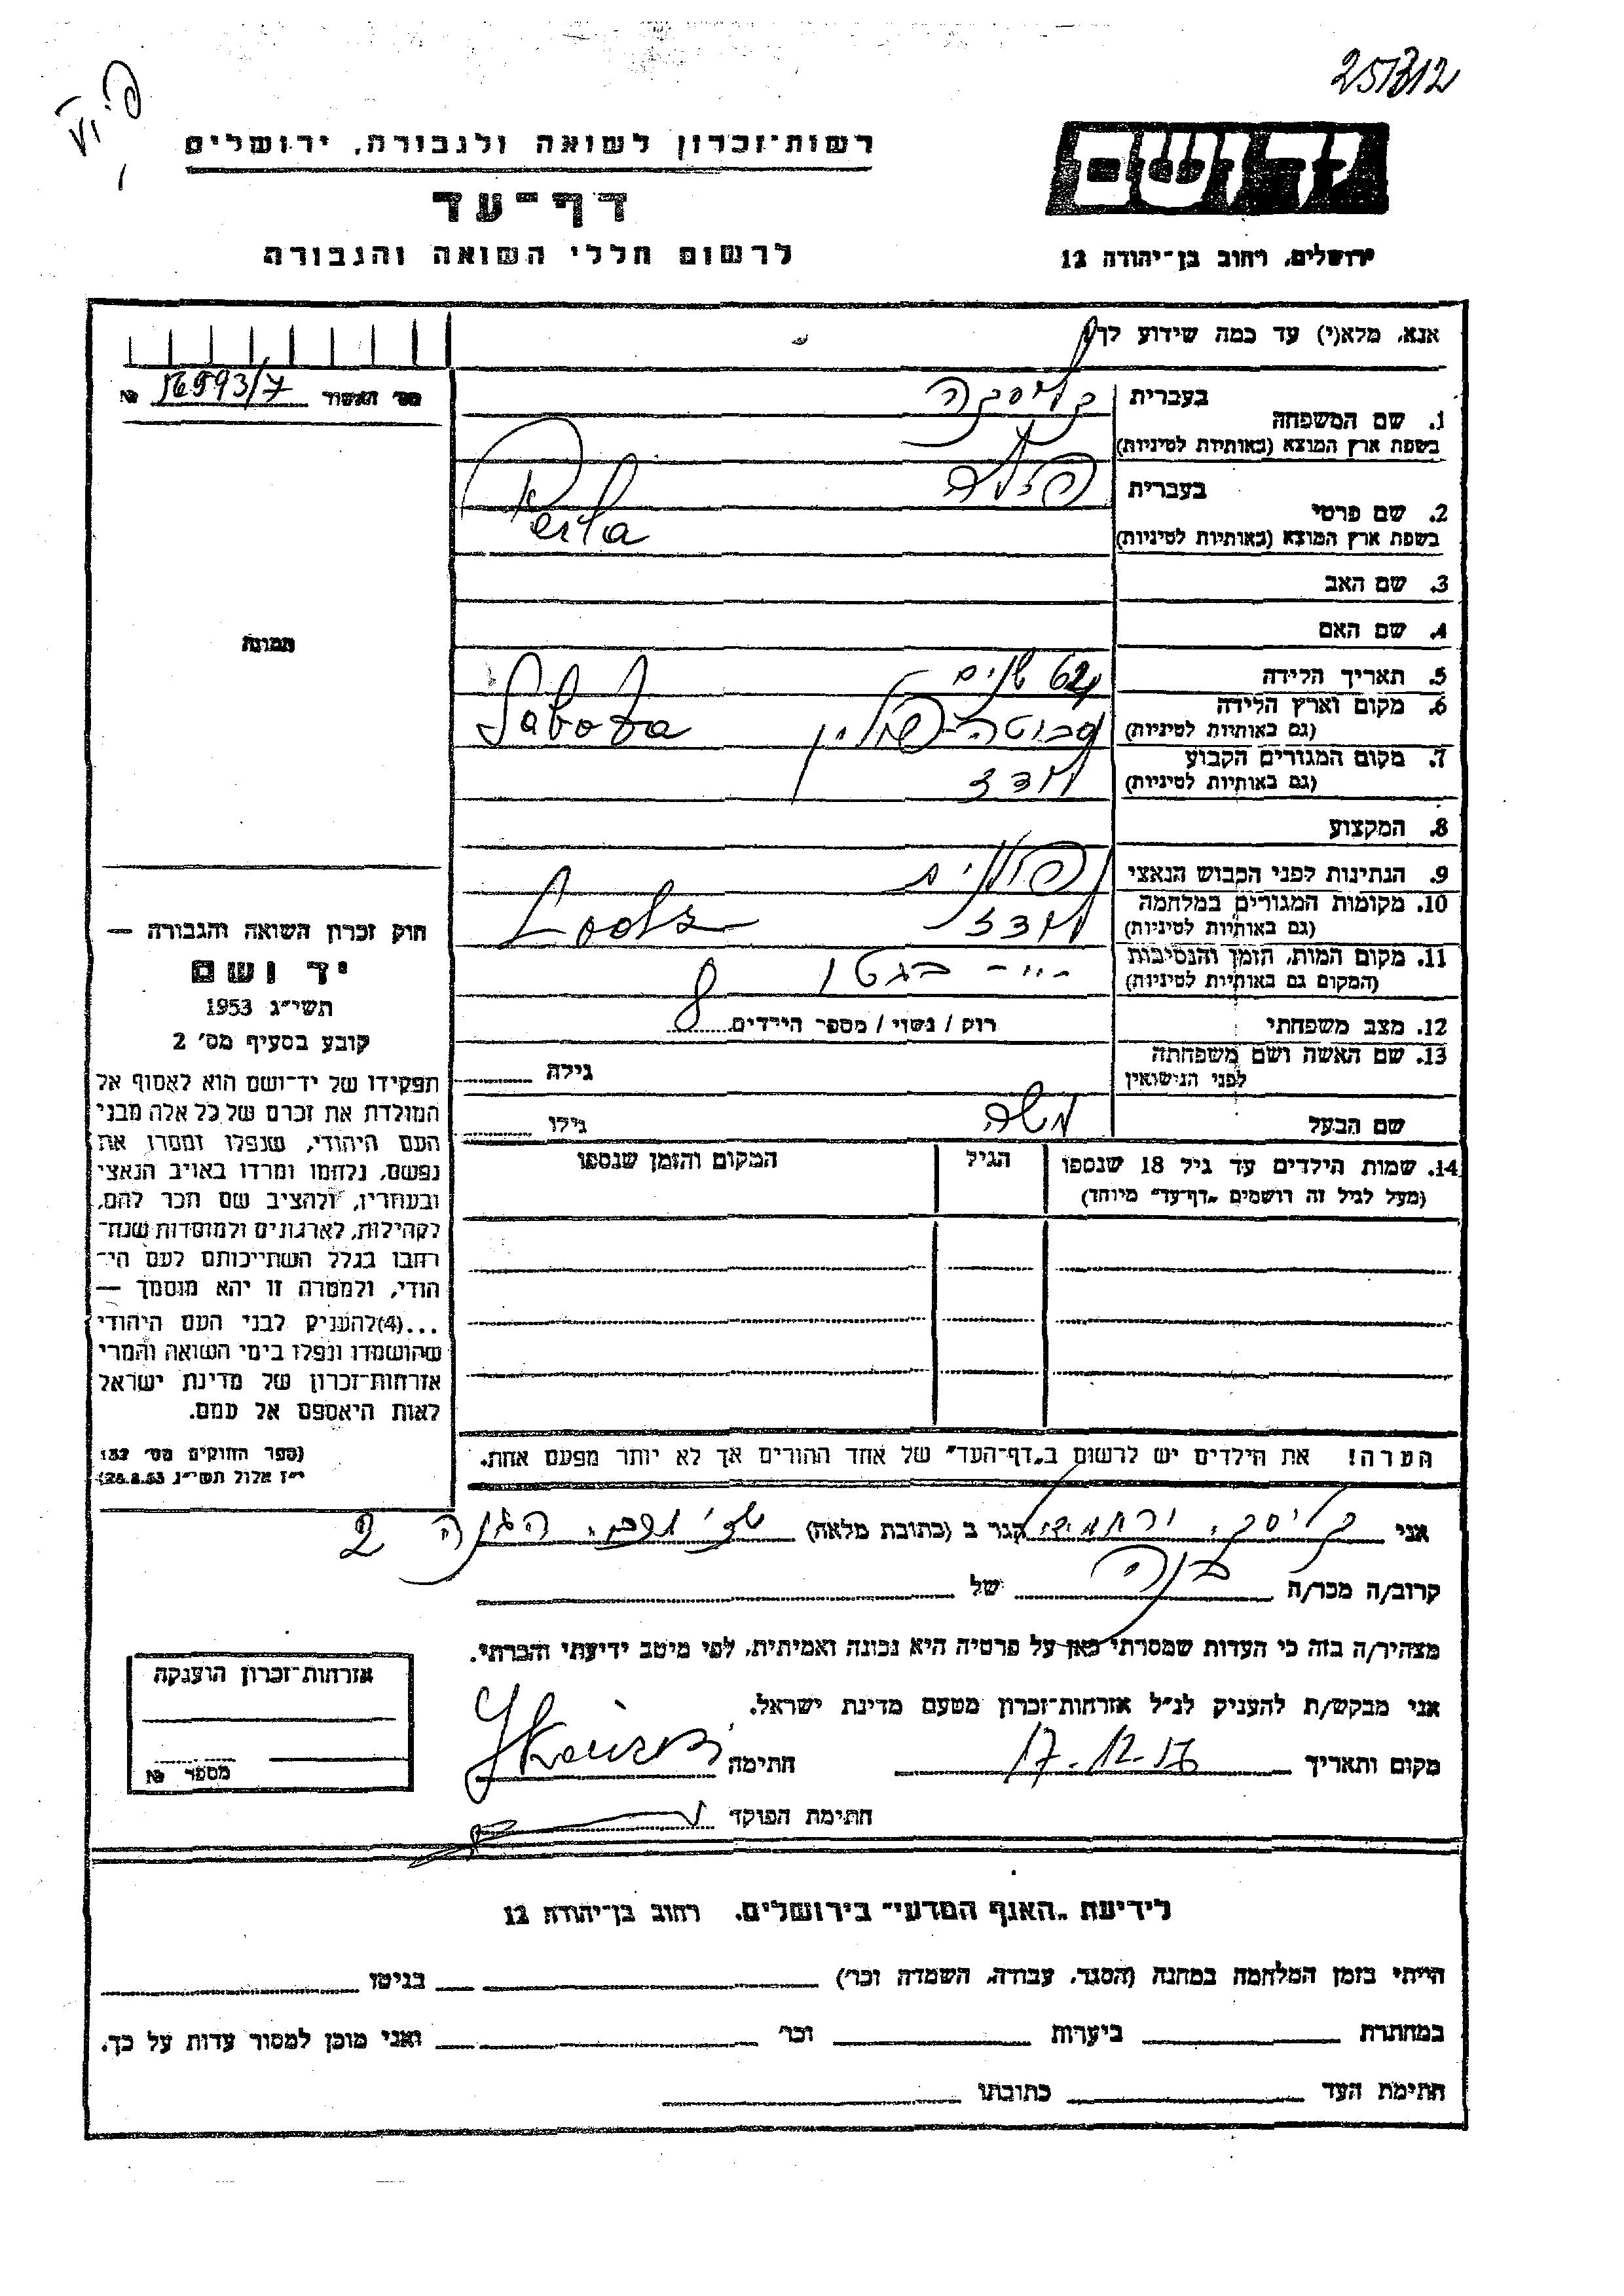 25312
רשות־זכרון לשואה ולגבורה, ירושלים
דף־עד
לרשום חללי השואה והגבורה
יד ושם
ירושלים, רחוב בן־יהודה 12
אנא, מלא(י) עד כמה שידוע לך
מס' האשור № 16593/7
1. שם המשפחה
בעברית
בשפת ארץ המוצא (באותיות לטיניות)
2. שם פרטי
בעברית פרלה
בשפת ארץ המוצא (באותיות לטיניות) Perla
3. שם האב
4. שם האם
תמונה
5. תאריך הלידה 62 שנים
6. מקום וארץ הלידה
(גם באותיות לטיניות) סבוטה-פולין Sabota
7. מקום המגורים הקבוע
(גם באותיות לטיניות) לודז
8. המקצוע
9. הנתינות לפני הכבוש הנאצי
10. מקומות המגורים במלחמה
(גם באותיות לטיניות) לודז Lodz
11. מקום המות, הזמן והנסיבות
(המקום גם באותיות לטיניות) -"- בגטו
12. מצב משפחתי רוק / נשוי / מספר הילדים 8
13. שם האשה ושם משפחתה
לפני הנישואין גילה
שם הבעל משה גילו
14. שמות הילדים עד גיל 18 שנספו הגיל המקום והזמן שנספו
(מעל לגיל זה רושמים „דף־עד" מיוחד)
הערה! את הילדים יש לרשום ב„דף־העד" של אחד ההורים אך לא יותר מפעם אחת.
חוק זכרון השואה והגבורה —
יד ושם
תשי״ג 1953
קובע בסעיף מס' 2
תפקידו של יד־ושם הוא לאסוף אל
המולדת את זכרם של כל אלה מבני
העם היהודי, שנפלו ומסרו את
נפשם, נלחמו ומרדו באויב הנאצי
ובעוזריו, ולהציב שם וזכר להם,
לקהילות, לארגונים ולמוסדות שנח־
רבו בגלל השתייכותם לעם הי־
הודי, ולמטרה זו יהא מוסמך —
...(4)להעניק לבני העם היהודי
שהושמדו ונפלו בימי השואה והמרי
אזרחות־זכרון של מדינת ישראל
לאות היאספם אל עמם.
(ספר החוקים מס' 132
י״ז אלול תשי״ג 28.8.53)
אני ירחמיאל הגר ב (כתובת מלאה) הגנה 2
קרוב/ה מכר/ה בנה של
מצהיר/ה בזה כי העדות שמסרתי כאן על פרטיה היא נכונה ואמיתית, לפי מיטב ידיעתי והכרתי.
אני מבקש/ת להעניק לנ״ל אזרחות־זכרון מטעם מדינת ישראל.
מקום ותאריך 17.12.56 חתימה
חתימת הפוקד
אזרחות־זכרון הוענקה
מספר №
לידיעת „האגף המדעי" בירושלים, רחוב בן־יהודה 12
הייתי בזמן המלחמה במחנה (הסגר, עבודה, השמדה וכר') בגיטו
במחתרת ביערות וכר' ואני מוכן למסור עדות על כך.
חתימת העד כתובתו